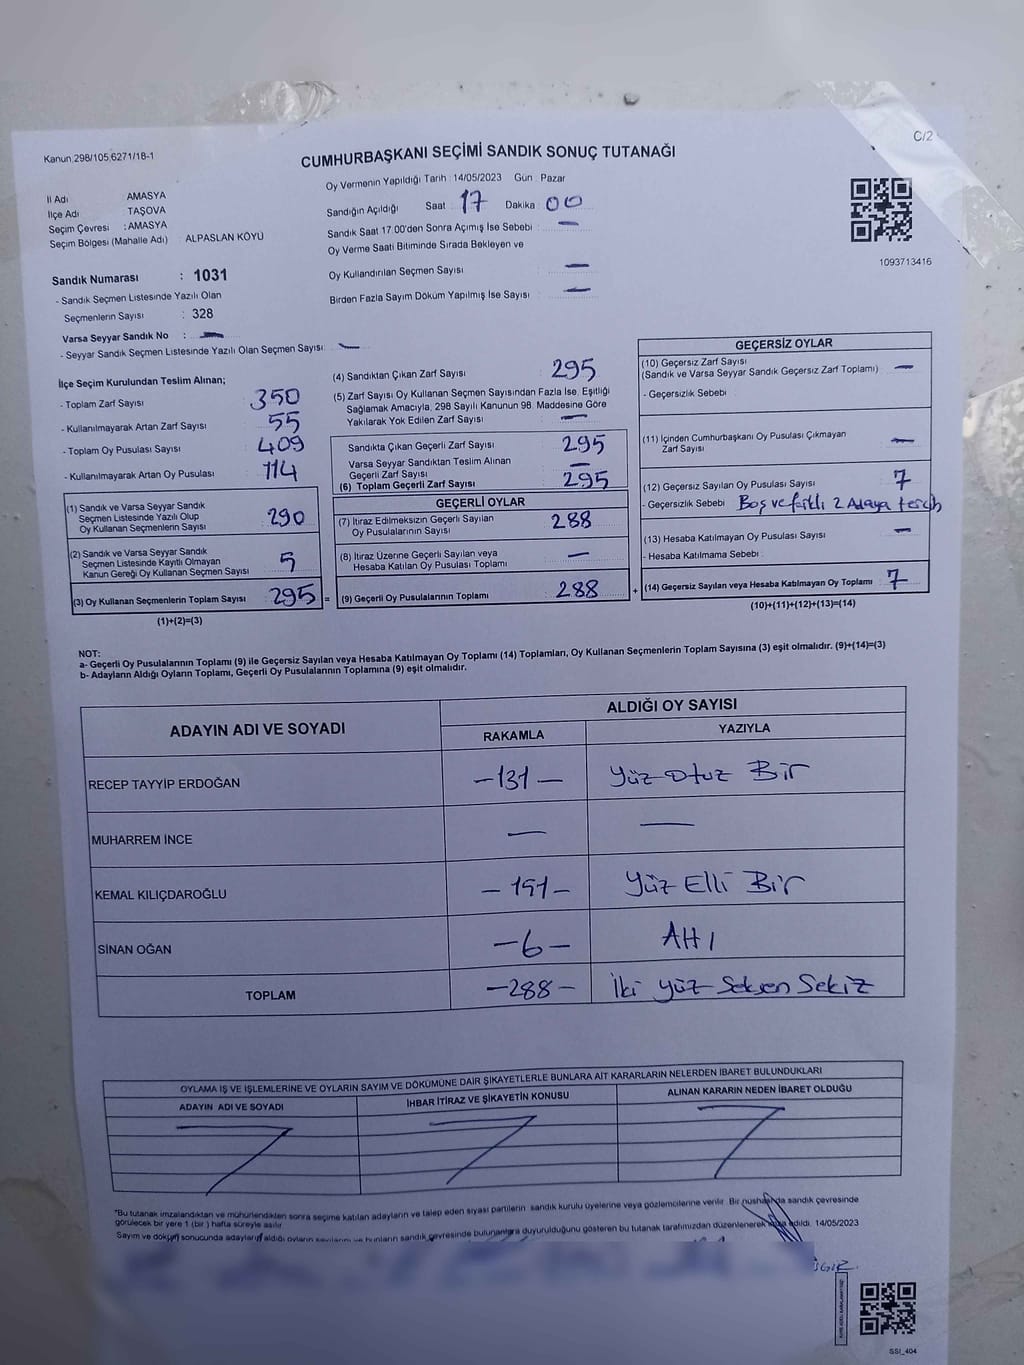 C/2
Kanun 298/105,6271/18-1
CUMHURBAŞKANI SEÇİMİ SANDIK SONUÇ TUTANAĞI
İl Adı AMASYA
İlçe Adı TAŞOVA
Seçim Çevresi : AMASYA
Seçim Bölgesi (Mahalle Adı) ALPASLAN KÖYÜ
Sandık Numarası : 1031
- Sandık Seçmen Listesinde Yazılı Olan
Seçmenlerin Sayısı : 328
Varsa Seyyar Sandık No : —
- Seyyar Sandık Seçmen Listesinde Yazılı Olan Seçmen Sayısı: —
Oy Vermenin Yapıldığı Tarih : 14/05/2023 Gün : Pazar
Sandığın Açıldığı Saat 17 Dakika 00
Sandık Saat 17.00'den Sonra Açımış İse Sebebi : —
Oy Verme Saati Bitiminde Sırada Bekleyen ve
Oy Kullandırılan Seçmen Sayısı —
Birden Fazla Sayım Döküm Yapılmış İse Sayısı : —
1093713416
İlçe Seçim Kurulundan Teslim Alınan;
- Toplam Zarf Sayısı : 350
- Kullanılmayarak Artan Zarf Sayısı : 55
- Toplam Oy Pusulası Sayısı : 409
- Kullanılmayarak Artan Oy Pusulası : 114
(1) Sandık ve Varsa Seyyar Sandık
Seçmen Listesinde Yazılı Olup
Oy Kullanan Seçmenlerin Sayısı : 290
(2) Sandık ve Varsa Seyyar Sandık
Seçmen Listesinde Kayıtlı Olmayan
Kanun Gereği Oy Kullanan Seçmen Sayısı : 5
(3) Oy Kullanan Seçmenlerin Toplam Sayısı : 295 =
(1)+(2)=(3)
(4) Sandıktan Çıkan Zarf Sayısı : 295
(5) Zarf Sayısı Oy Kullanan Seçmen Sayısından Fazla İse, Eşitliği
Sağlamak Amacıyla, 298 Sayılı Kanunun 98. Maddesine Göre
Yakılarak Yok Edilen Zarf Sayısı : —
Sandıkta Çıkan Geçerli Zarf Sayısı : 295
Varsa Seyyar Sandıktan Teslim Alınan
Geçerli Zarf Sayısı : —
(6) Toplam Geçerli Zarf Sayısı : 295
GEÇERLİ OYLAR
(7) İtiraz Edilmeksizin Geçerli Sayılan
Oy Pusulalarının Sayısı : 288
(8) İtiraz Üzerine Geçerli Sayılan veya
Hesaba Katılan Oy Pusulası Toplamı : —
(9) Geçerli Oy Pusulalarının Toplamı : 288 +
GEÇERSİZ OYLAR
(10) Geçersiz Zarf Sayısı
(Sandık ve Varsa Seyyar Sandık Geçersiz Zarf Toplamı) : —
- Geçersizlik Sebebi :
(11) İçinden Cumhurbaşkanı Oy Pusulası Çıkmayan
Zarf Sayısı : —
(12) Geçersiz Sayılan Oy Pusulası Sayısı : 7
- Geçersizlik Sebebi : Boş ve farklı 2 Adaya tercih
(13) Hesaba Katılmayan Oy Pusulası Sayısı : —
- Hesaba Katılmama Sebebi :
(14) Geçersiz Sayılan veya Hesaba Katılmayan Oy Toplamı : 7
(10)+(11)+(12)+(13)=(14)
NOT:
a- Geçerli Oy Pusulalarının Toplamı (9) ile Geçersiz Sayılan veya Hesaba Katılmayan Oy Toplamı (14) Toplamları, Oy Kullanan Seçmenlerin Toplam Sayısına (3) eşit olmalıdır. (9)+(14)=(3)
b- Adayların Aldığı Oyların Toplamı, Geçerli Oy Pusulalarının Toplamına (9) eşit olmalıdır.
ADAYIN ADI VE SOYADI ALDIĞI OY SAYISI
RAKAMLA YAZIYLA
RECEP TAYYİP ERDOĞAN —131— Yüz Otuz Bir
MUHARREM İNCE — —
KEMAL KILIÇDAROĞLU —151— Yüz Elli Bir
SİNAN OĞAN —6— Altı
TOPLAM —288— İki yüz Seksen Sekiz
OYLAMA İŞ VE İŞLEMLERİNE VE OYLARIN SAYIM VE DÖKÜMÜNE DAİR ŞİKAYETLERLE BUNLARA AİT KARARLARIN NELERDEN İBARET BULUNDUKLARI
ADAYIN ADI VE SOYADI İHBAR İTİRAZ VE ŞİKAYETİN KONUSU ALINAN KARARIN NEDEN İBARET OLDUĞU
*Bu tutanak imzalandıktan ve mühürlendikten sonra seçime katılan adayların ve talep eden siyasi partilerin sandık kurulu üyelerine veya gözlemcilerine verilir. Bir nüshası da sandık çevresinde
görülecek bir yere 1 (bir) hafta süreyle asılır.
Sayım ve döküm sonucunda adayların aldığı oyların sayılarını ve bunların sandık çevresinde bulunanlara duyurulduğunu gösteren bu tutanak tarafımızdan düzenlenerek imza edildi. 14/05/2023
SSI_404